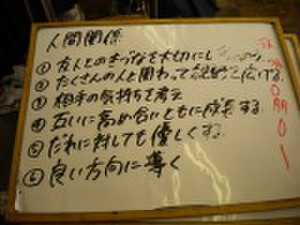 人間関係
① 友人とのきづなを大切にし
② たくさんの人と関わって 広げる
③ 相手の気持ちを考え
④ 互いに高め合いともに成長する
⑤ だれに対しても優しくする
⑥ 良い方向に導く